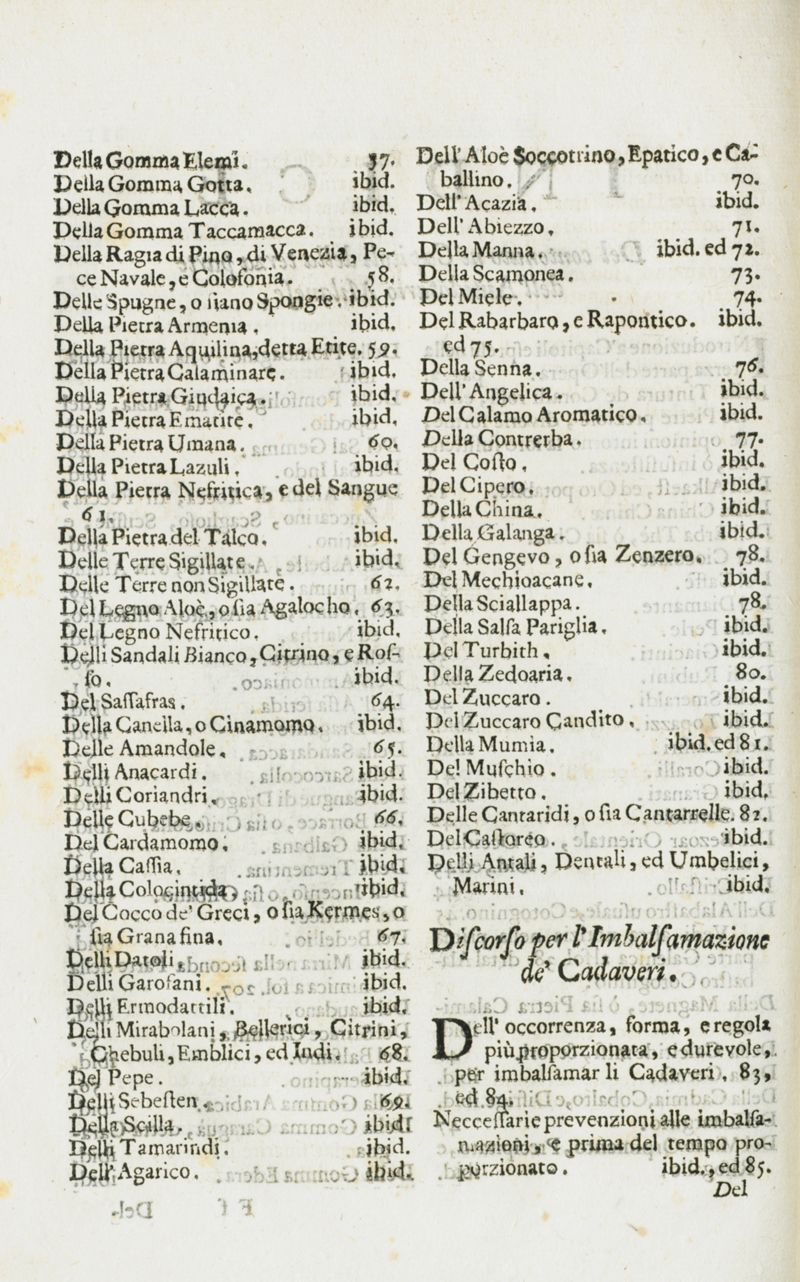 Della Gomma Elemi. 57.
Della Gomma Gotta. ibid.
Della Gomma Lacca. ibid.
Della Gomma Taccamacca. ibid.
Della Ragia di Pino, di Venezia, Pe-
ce Navale, e Colofonia. 58.
Delle Spugne, o siano Spongie. ibid.
Della Pietra Armenia. ibid.
Della Pietra Aquilina, detta Etite. 59.
Della Pietra Calaminare. ibid.
Della Pietra Giudaica. ibid.
Della Pietra Ematite. ibid.
Della Pietra Umana. 60.
Della Pietra Lazuli. ibid.
Della Pietra Nefritica, e del Sangue
61.
Della Pietra del Talco. ibid.
Delle Terre Sigillate. ibid.
Delle Terre non Sigillate. 62.
Del Legno Aloè, o ſia Agalocho. 63.
Del Legno Nefritico. ibid.
Delli Sandali Bianco, Citrino, e Roſ-
ſo. ibid.
Del Saſſafras. 64.
Della Canella, o Cinamomo. ibid.
Delle Amandole. 65.
Delli Anacardi. ibid.
Delli Coriandri. ibid.
Delle Cubebe. 66.
Del Cardamomo. ibid.
Della Caſſia. ibid.
Della Colocintida, ibid.
Del Cocco de' Greci, o ſia Kermes, o
ſia Grana fina. 67.
Delli Datoli. ibid.
Delli Garofani. ibid.
Delli Ermodattili. ibid.
Delli Mirabolani, Bellerici, Citrini,
Chebuli, Emblici, ed Indi. 68.
Del Pepe. ibid.
Delli Sebeſten. 69.
Della Scilla. ibid.
Delli Tamarindi. ibid.
Dell' Agarico. ibid.
Dell' Aloè Soccotrino, Epatico, e Ca-
ballino. 70.
Dell' Acazia. ibid.
Dell' Abiezzo. 71.
Della Manna. ibid. ed 72.
Della Scamonea. 73.
Del Miele. 74.
Del Rabarbaro, e Rapontico. ibid.
ed 75.
Della Senna. 76.
Dell' Angelica. ibid.
Del Calamo Aromatico. ibid.
Della Contrerba. 77.
Del Coſto. ibid.
Del Cipero. ibid.
Della China. ibid.
Della Galanga. ibid.
Del Gengevo, o ſia Zenzero. 78.
Del Mechioacane. ibid.
Della Sciallappa. 78.
Della Salſa Pariglia. ibid.
Del Turbith. ibid.
Della Zedoaria. 80.
Del Zuccaro. ibid.
Del Zuccaro Candito. ibid.
Della Mumia. ibid. ed 81.
Del Muſchio. ibid.
Del Zibetto. ibid.
Delle Cantaridi, o ſia Cantarrelle. 82.
Del Caſtoreo. ibid.
Delli Antali, Dentali, ed Umbelici,
Marini. ibid.
Diſcorſo per l' Imbalſamazione
de' Cadaveri.
Dell' occorrenza, forma, e regola
più proporzionata, e durevole,
per imbalſamar li Cadaveri, 83,
ed 84.
Necceſſarie prevenzioni alle imbalſa-
mazioni, e prima del tempo pro-
porzionato. ibid., ed 85.
Del